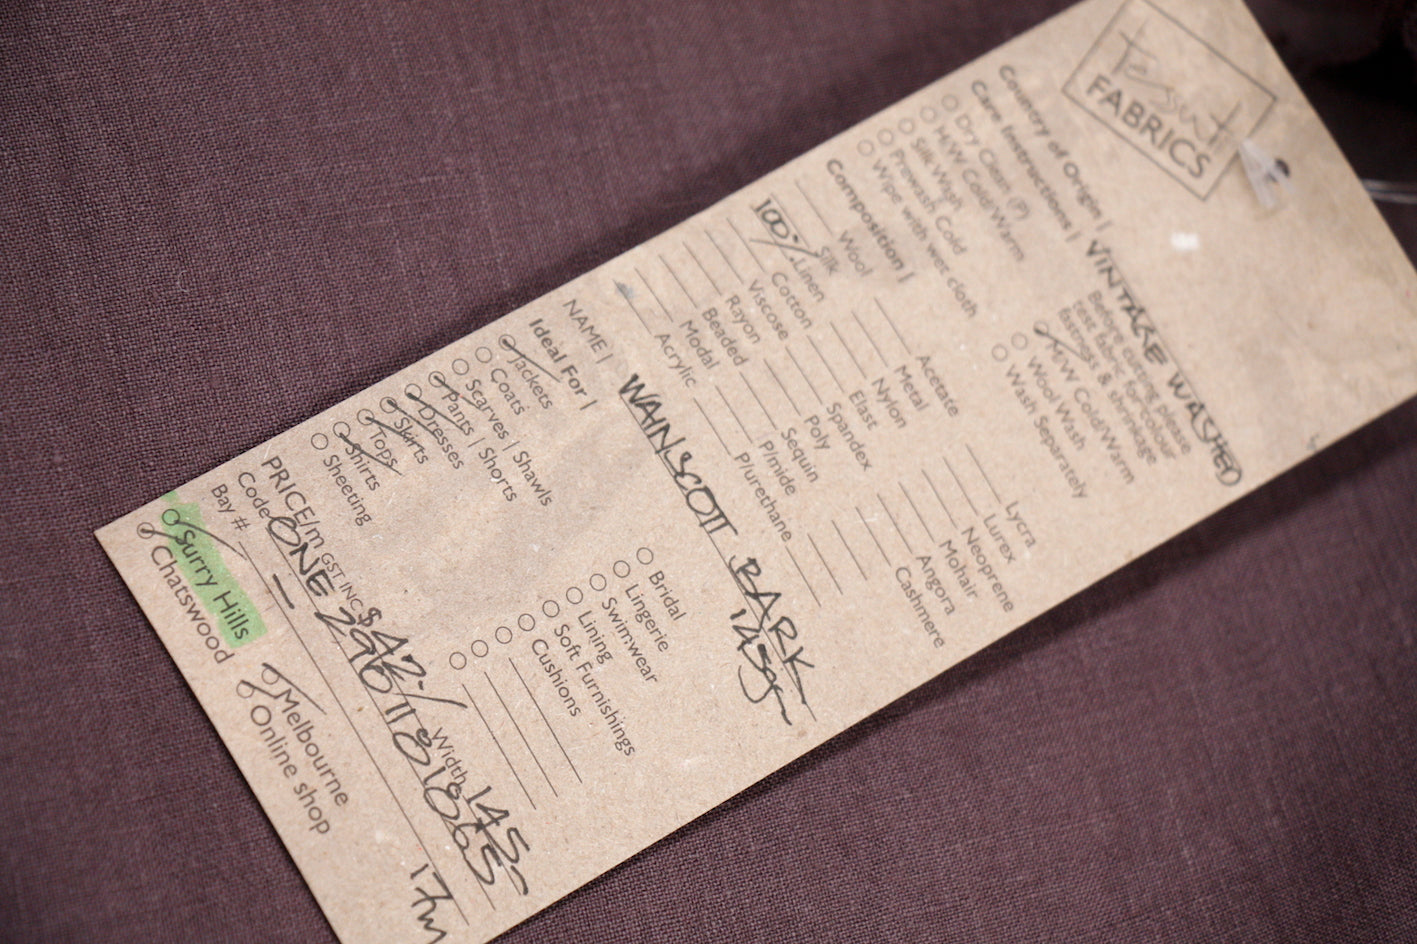 tessuti
FABRICS
Country of Origin |
VINTAGE WASHED
Care Instructions |
Before cutting please
test fabric for colour
fastness & shrinkage
Dry Clean (P)
H/W Cold/Warm
Silk Wash
Prewash Cold
Wipe with wet cloth
M/W Cold/Warm
Wool Wash
Wash Separately
Composition |
Wool
Silk
100% Linen
Cotton
Viscose
Rayon
Beaded
Modal
Acrylic
Acetate
Metal
Nylon
Elast
Spandex
Poly
Sequin
P/mide
P/urethane
Lycra
Lurex
Neoprene
Mohair
Angora
Cashmere
NAME | WAINSCOTT BARK
145gm
Ideal For |
Jackets
Coats
Scarves | Shawls
Pants | Shorts
Dresses
Skirts
Tops
Shirts
Sheeting
Bridal
Lingerie
Swimwear
Lining
Soft Furnishings
Cushions
PRICE/m GST INC $42-/ Width 145
Code
Bay #
17m
Surry Hills
Chatswood
Melbourne
Online shop